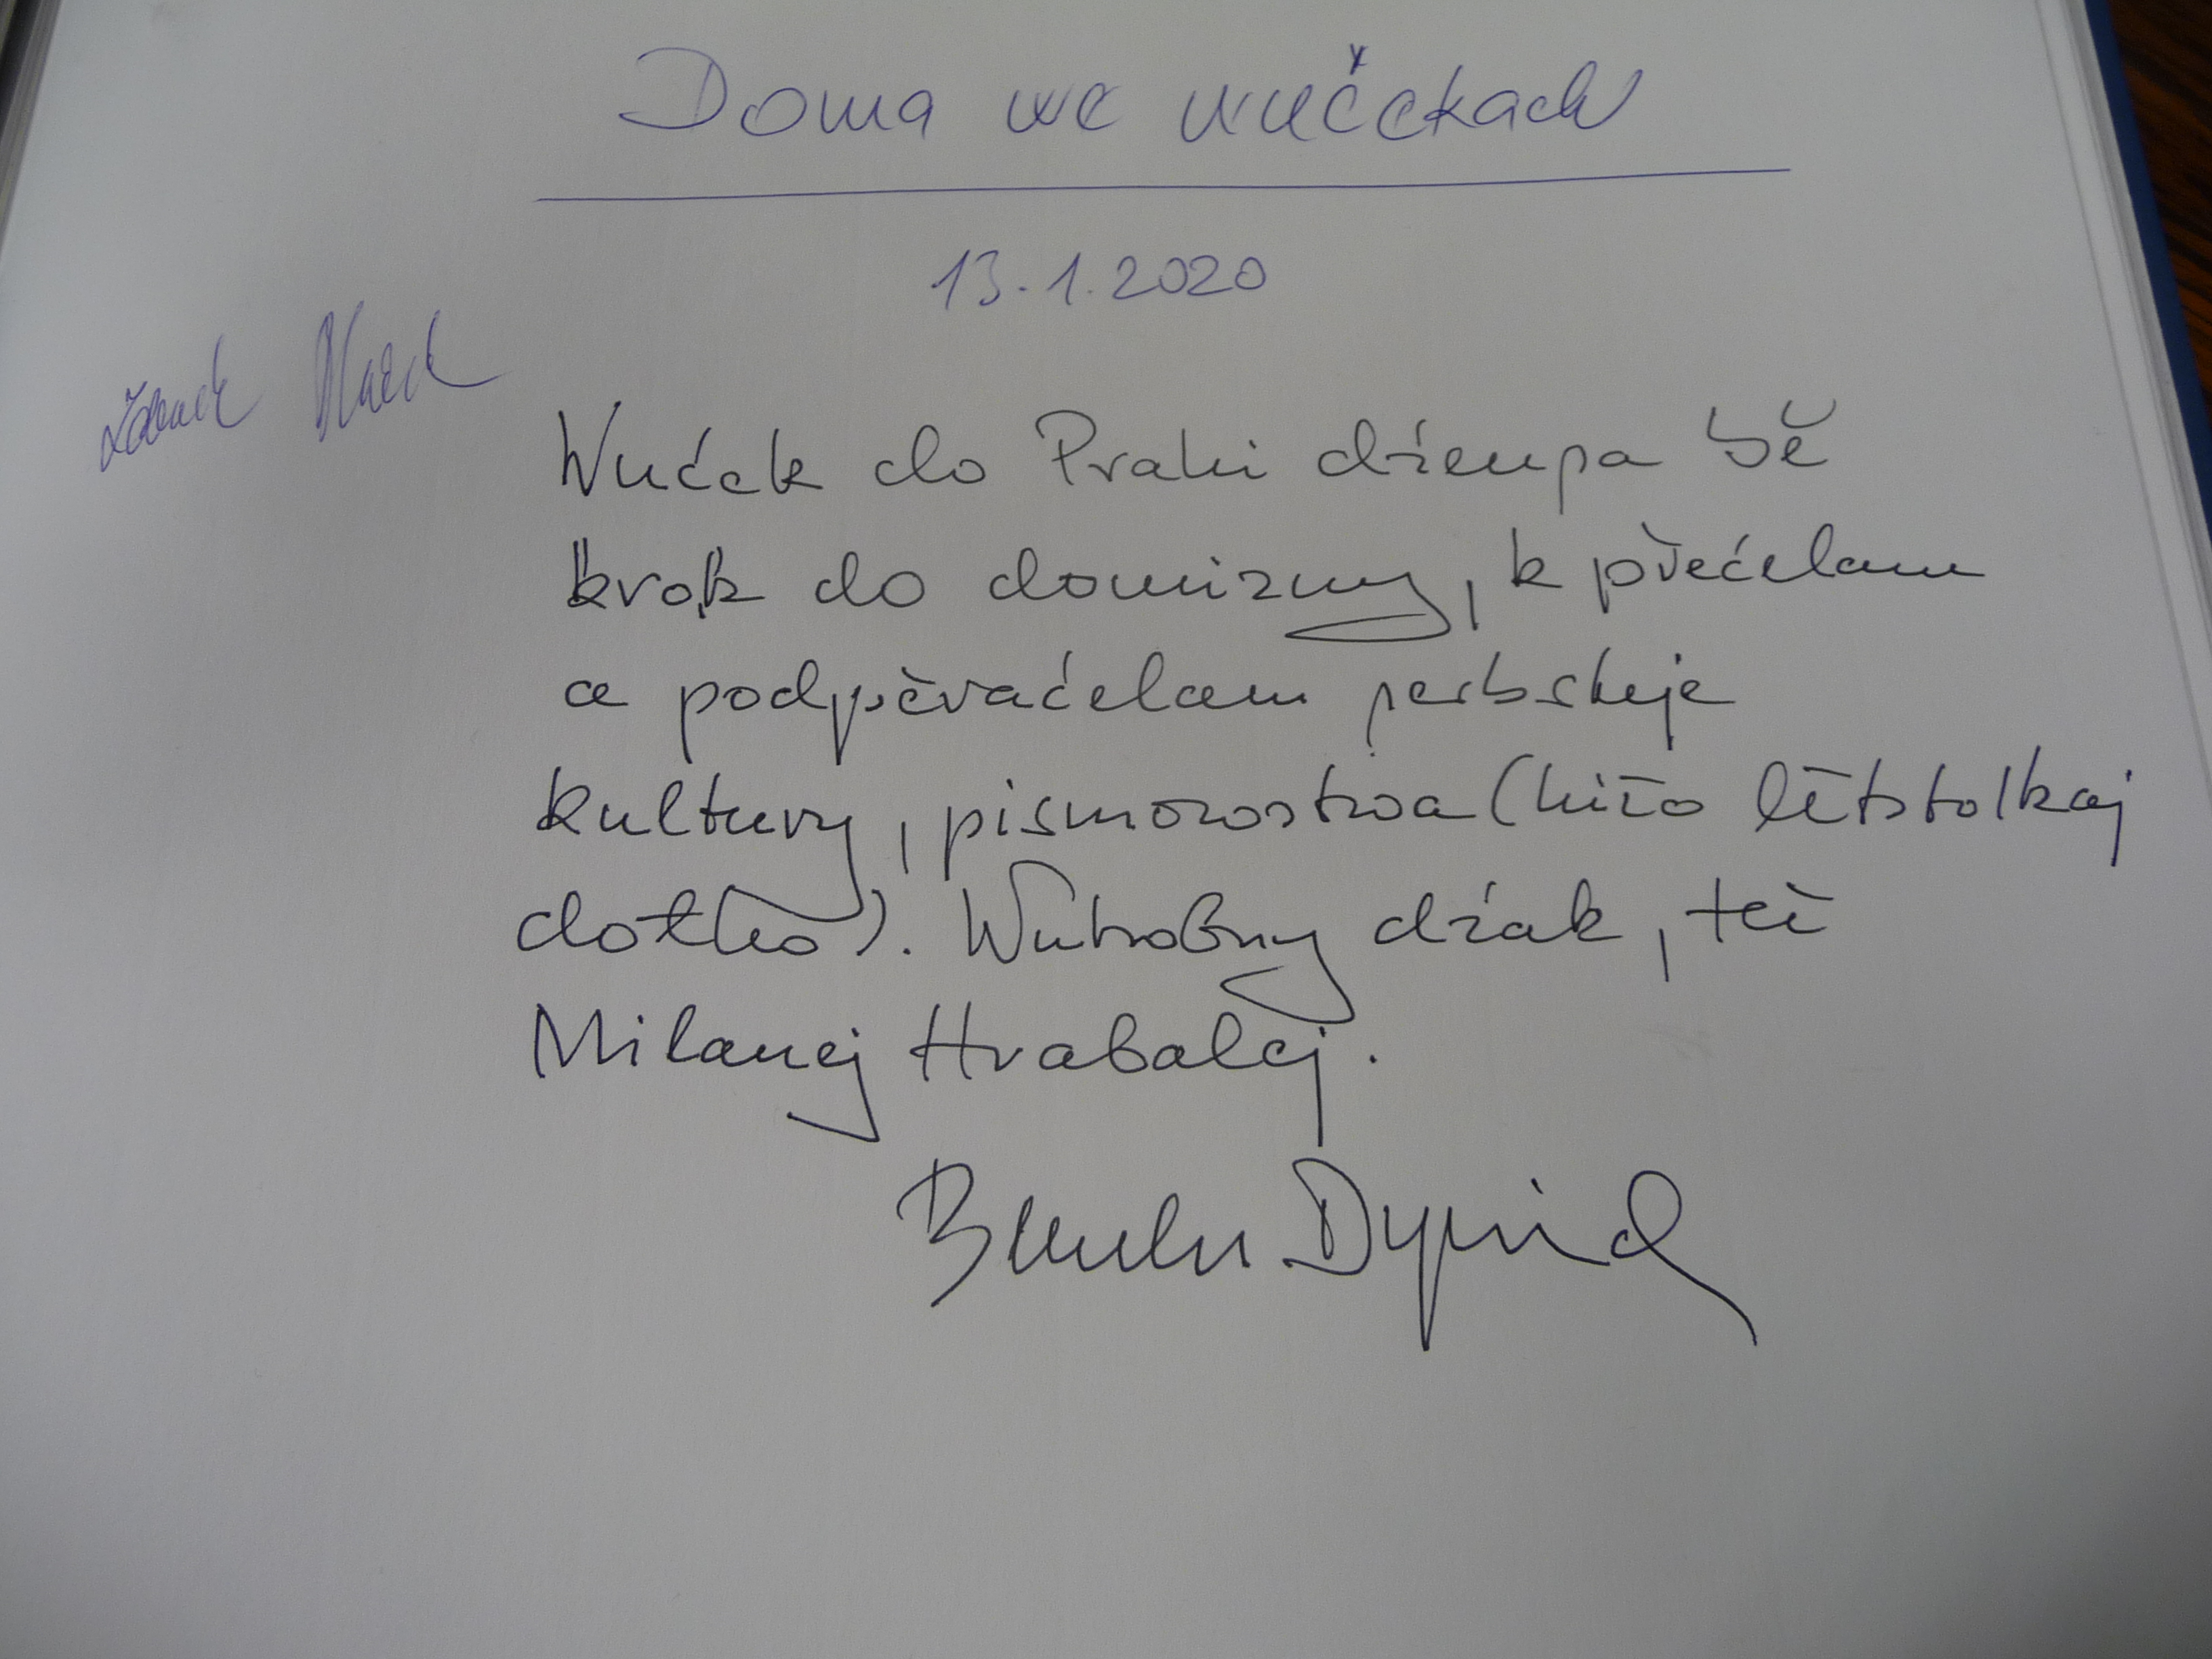 Doma we wučekach
13.1.2020
Wućek do Prahi dźensa bě
krok do domizny, k přećelam
a podpěraćelam serbskeje
kultury, pismowstwa (hižo lětstotkaj
dołho). Wutrobny dźak, tež
Milanej Hrabalej.
Benedikt Dyrlich